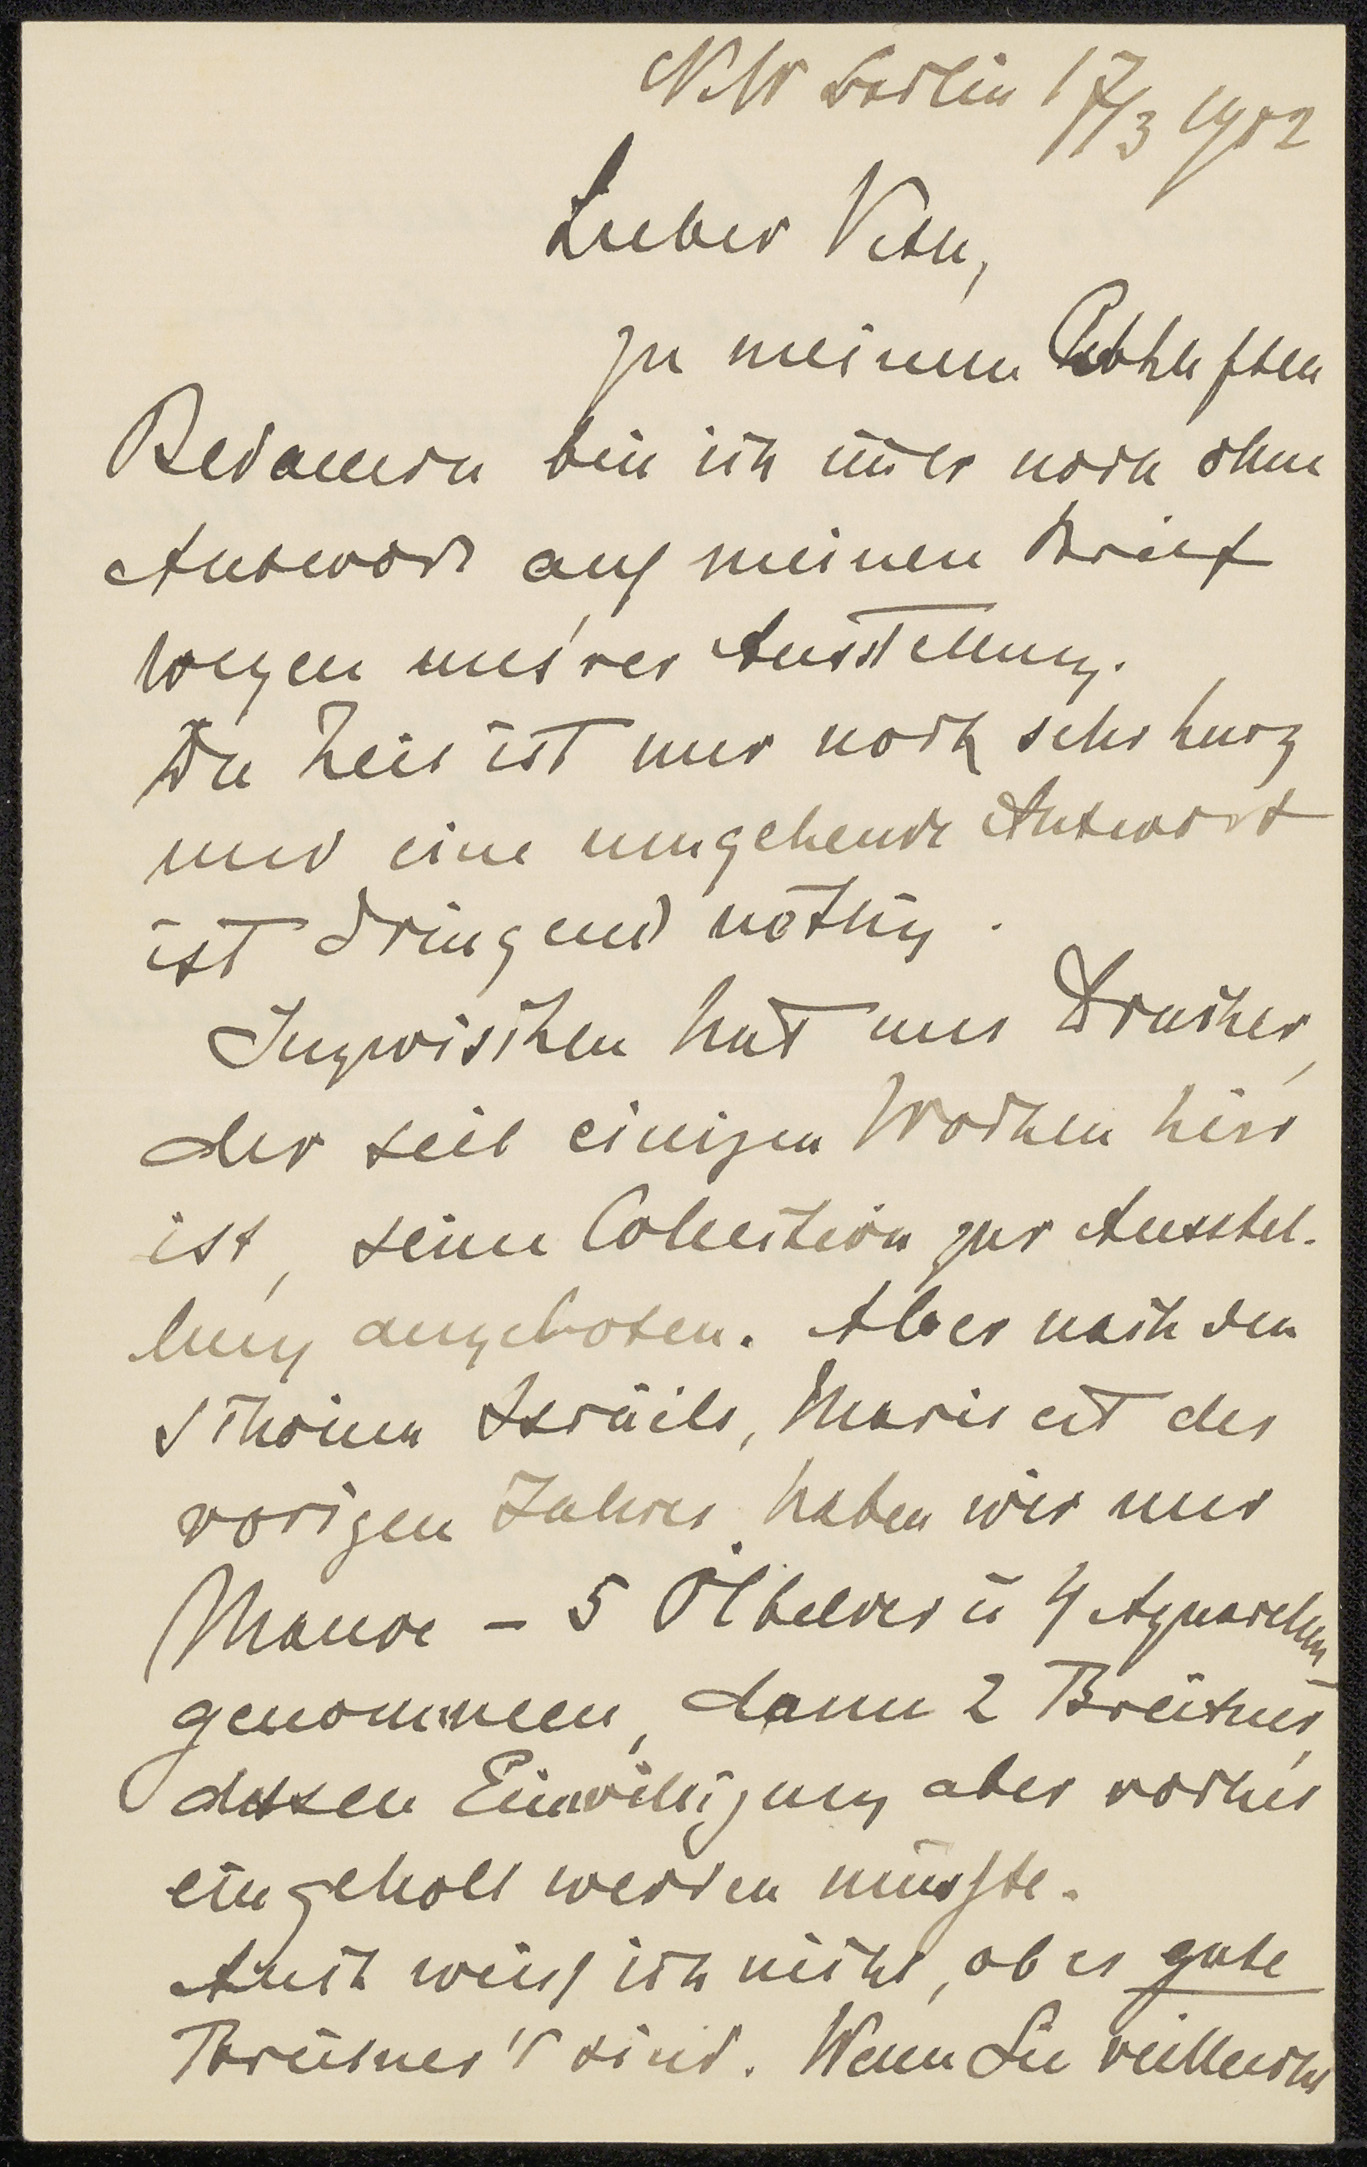 NW Berlin 17/3 1902
Lieber Veth,
zu meinem lebhaften
Bedauern bin ich im̄er noch ohne
Antwort auf meinen Brief
wegen uns'rer Ausstellung.
Die Zeit ist nur noch sehr kurz
und eine umgehende Antwort
ist dringend nöthig.
Inzwischen hat uns Drucker,
der seit einigen Wochen hier
ist, seine Collection zur Ausstel-
lung angeboten. Aber nach den
schönen Israëls, Maris ect des
vorigen Jahres haben wir nur
Mauve - 5 Ölbilder u 4 Aquarellen
genommen, dann 2 Breitner,
dessen Einwilligung aber vorher
eingeholt werden müsste.
Auch weiss ich nicht, ob es gute
Breitner's sind. Wenn Sie vielleicht